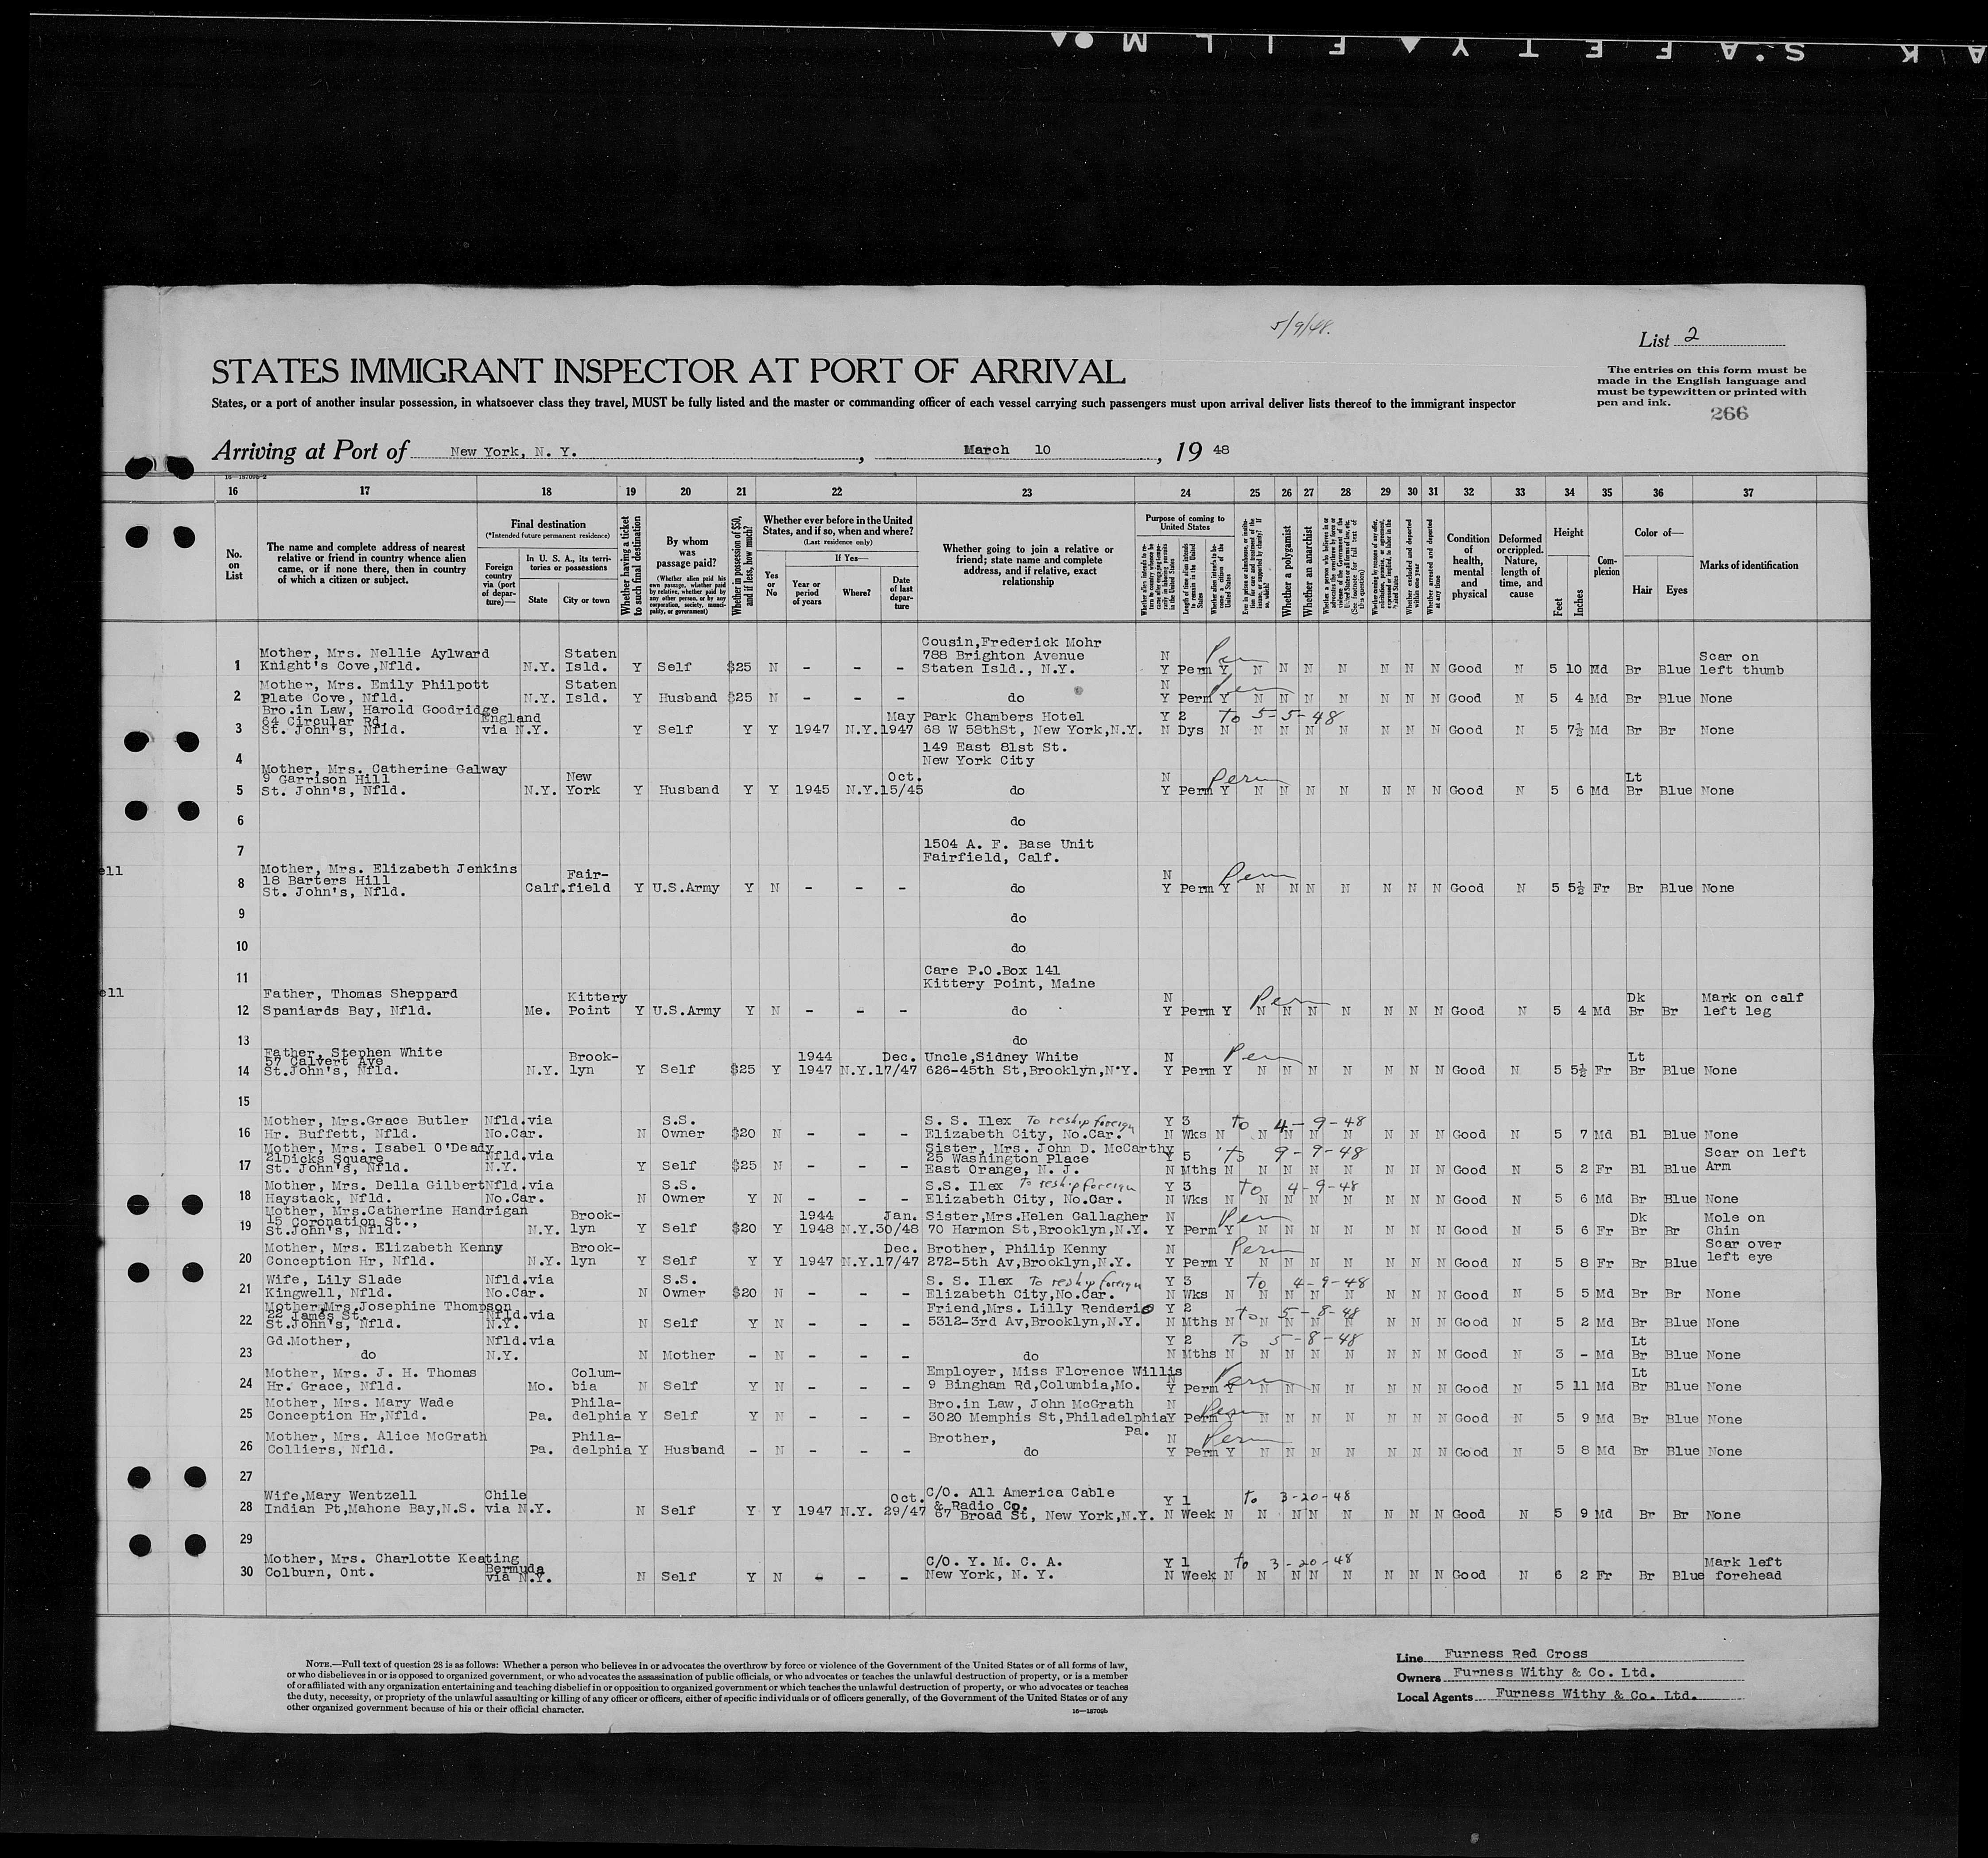 K SAFETY FILM
5/9/48.
List 2
STATES IMMIGRANT INSPECTOR AT PORT OF ARRIVAL
The entries on this form must be
made in the English language and
must be typewritten or printed with
pen and ink.
266
States, or a port of another insular possession, in whatsoever class they travel, MUST be fully listed and the master or commanding officer of each vessel carrying such passengers must upon arrival deliver lists thereof to the immigrant inspector
Arriving at Port of New York, N. Y., March 10, 19 48
16 17 18 19 20 21 22 23 24 25 26 27 28 29 30 31 32 33 34 35 36 37
No. on List
The name and complete address of nearest
relative or friend in country whence alien
came, or if none there, then in country
of which a citizen or subject.
Final destination
(*Intended future permanent residence)
Foreign country via (port of departure)—
In U. S. A., its territories or possessions
State
City or town
Whether having a ticket to such final destination
By whom was passage paid?
(Whether alien paid his own passage, whether paid by relative, whether paid by any other person, or by any corporation, society, municipality, or government)
Whether in possession of $50, and if less, how much?
Whether ever before in the United
States, and if so, when and where?
(Last residence only)
Yes or No
If Yes—
Year or period of years
Where?
Date of last departure
Whether going to join a relative or
friend; state name and complete
address, and if relative, exact
relationship
Purpose of coming to United States
Length of time alien intends to remain in the United States
Whether alien intends to become a citizen of the United States
Whether a polygamist
Whether an anarchist
(See footnote for full text of this question)
Whether excluded and deported within one year
Whether arrested and deported at any time
Condition of health, mental and physical
Deformed or crippled. Nature, length of time, and cause
Height
Feet
Inches
Complexion
Color of—
Hair
Eyes
Marks of identification
1 Mother, Mrs. Nellie Aylward Knight's Cove,Nfld. N.Y. Staten Isld. Y Self $25 N - - - Cousin,Frederick Mohr 788 Brighton Avenue Staten Isld., N.Y. N Y Perm Y Perm N N N N N N N Good N 5 10 Md Br Blue Scar on left thumb
2 Mother, Mrs. Emily Philpott Plate Cove, Nfld. N.Y. Staten Isld. Y Husband $25 N - - - do N Y Perm Y Perm N N N N N N N Good N 5 4 Md Br Blue None
3 Bro.in Law, Harold Goodridge 64 Circular Rd. St. John's, Nfld. England via N.Y. Y Self Y Y 1947 N.Y. May 1947 Park Chambers Hotel 68 W 58thSt, New York,N.Y. Y N 2 Dys N to 5-5-48 N N N N N N N Good N 5 7½ Md Br Br None
4 149 East 81st St. New York City
5 Mother, Mrs. Catherine Galway 9 Garrison Hill St. John's, Nfld. N.Y. New York Y Husband Y Y 1945 N.Y. Oct. 15/45 do N Y Perm Y Perm N N N N N N N Good N 5 6 Md Lt Br Blue None
6 do
7 1504 A. F. Base Unit Fairfield, Calf.
ell
8 Mother, Mrs. Elizabeth Jenkins 18 Barters Hill St. John's, Nfld. Calf. Fair-field Y U.S.Army Y N - - - do N Y Perm Y Perm N N N N N N N Good N 5 5½ Fr Br Blue None
9 do
10 do
11 Care P.O.Box 141 Kittery Point, Maine
ell
12 Father, Thomas Sheppard Spaniards Bay, Nfld. Me. Kittery Point Y U.S.Army Y N - - - do N Y Perm Y Perm N N N N N N N Good N 5 4 Md Dk Br Br Mark on calf left leg
13 do
14 Father, Stephen White 57 Calvert Ave St.John's, Nfld. N.Y. Brook-lyn Y Self $25 Y 1944 1947 N.Y. Dec. 17/47 Uncle,Sidney White 626-45th St,Brooklyn,N.Y. N Y Perm Y Perm N N N N N N N Good N 5 5½ Fr Lt Br Blue None
15
16 Mother, Mrs.Grace Butler Hr. Buffett, Nfld. Nfld.via No.Car. N S.S. Owner $20 N - - - S. S. Ilex To reship foreign Elizabeth City, No.Car. Y N 3 Wks N to 4-9-48 N N N N N N N Good N 5 7 Md Bl Blue None
17 Mother, Mrs. Isabel O'Deady 21Dicks Square St. John's, Nfld. Nfld.via N.Y. Y Self $25 N - - - Sister, Mrs. John D. McCarthy 25 Washington Place East Orange, N. J. Y N 5 Mths N to 9-9-48 N N N N N N N Good N 5 2 Fr Bl Blue Scar on left Arm
18 Mother, Mrs. Della Gilbert Haystack, Nfld. Nfld.via No.Car. N S.S. Owner Y N - - - S.S. Ilex To reship foreign Elizabeth City, No.Car. Y N 3 Wks N to 4-9-48 N N N N N N N Good N 5 6 Md Br Blue None
19 Mother, Mrs.Catherine Handrigan 15 Coronation St., St.John's, Nfld. N.Y. Brook-lyn Y Self $20 Y 1944 1948 N.Y. Jan. 30/48 Sister,Mrs.Helen Gallagher 70 Harmon St,Brooklyn,N.Y. N Y Perm Y Perm N N N N N N N Good N 5 6 Fr Dk Br Br Mole on Chin
20 Mother, Mrs. Elizabeth Kenny Conception Hr, Nfld. N.Y. Brook-lyn Y Self Y Y 1947 N.Y. Dec. 17/47 Brother, Philip Kenny 272-5th Av,Brooklyn,N.Y. N Y Perm Y Perm N N N N N N N Good N 5 8 Fr Br Blue Scar over left eye
21 Wife, Lily Slade Kingwell, Nfld. Nfld.via No.Car. N S.S. Owner $20 N - - - S. S. Ilex To reship foreign Elizabeth City,No.Car. Y N 3 Wks N to 4-9-48 N N N N N N N Good N 5 5 Md Br Br None
22 Mother,Mrs.Josephine Thompson 22 James St. St.John's, Nfld. Nfld.via N.Y. N Self Y N - - - Friend,Mrs. Lilly Renderio 5312-3rd Av,Brooklyn,N.Y. Y N 2 Mths N to 5-8-48 N N N N N N N Good N 5 2 Md Br Blue None
23 Gd.Mother, do Nfld.via N.Y. N Mother - N - - - do Y N 2 Mths N to 5-8-48 N N N N N N N Good N 3 - Md Lt Br Blue None
24 Mother, Mrs. J. H. Thomas Hr. Grace, Nfld. Mo. Colum-bia N Self Y N - - - Employer, Miss Florence Willis 9 Bingham Rd,Columbia,Mo. N Y Perm Y Perm N N N N N N N Good N 5 11 Md Lt Br Blue None
25 Mother, Mrs. Mary Wade Conception Hr,Nfld. Pa. Phila-delphia Y Self Y N - - - Bro.in Law, John McGrath 3020 Memphis St,Philadelphia Pa. N Y Perm Y Perm N N N N N N N Good N 5 9 Md Br Blue None
26 Mother, Mrs. Alice McGrath Colliers, Nfld. Pa. Phila-delphia Y Husband - N - - - Brother, do N Y Perm Y Perm N N N N N N N Good N 5 8 Md Br Blue None
27
28 Wife,Mary Wentzell Indian Pt,Mahone Bay,N.S. Chile via N.Y. N Self Y Y 1947 N.Y. Oct. 29/47 C/O. All America Cable & Radio Co. 67 Broad St, New York,N.Y. Y N 1 Week N to 3-20-48 N N N N N N N Good N 5 9 Md Br Br None
29
30 Mother, Mrs. Charlotte Keating Colburn, Ont. Bermuda via N.Y. N Self Y N - - - C/O. Y. M. C. A. New York, N. Y. Y N 1 Week N to 3-20-48 N N N N N N N Good N 6 2 Fr Br Blue Mark left forehead
NOTE.—Full text of question 28 is as follows: Whether a person who believes in or advocates the overthrow by force or violence of the Government of the United States or of all forms of law,
or who disbelieves in or is opposed to organized government, or who advocates the assassination of public officials, or who advocates or teaches the unlawful destruction of property, or is a member
of or affiliated with any organization entertaining and teaching disbelief in or opposition to organized government or which teaches the unlawful destruction of property, or who advocates or teaches
the duty, necessity, or propriety of the unlawful assaulting or killing of any officer or officers, either of specific individuals or of officers generally, of the Government of the United States or of any
other organized government because of his or their official character.
16—18709b
Line Furness Red Cross
Owners Furness Withy & Co. Ltd.
Local Agents Furness Withy & Co. Ltd.